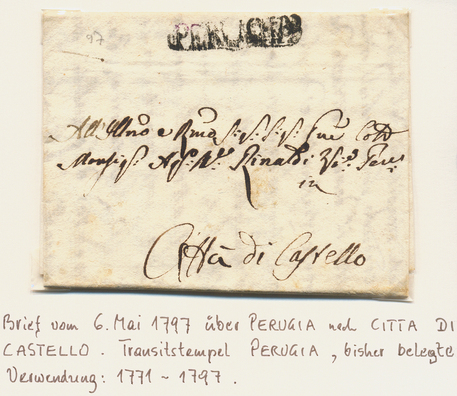 97
PERUGIA
All'Illmo e Rmo Sigr. Sigr.
Monsigr. Rinaldi
in
Città di Castello
Brief vom 6. Mai 1797 über PERUGIA nach CITTA DI
CASTELLO. Transitstempel PERUGIA, bisher belegte
Verwendung: 1771 - 1797.